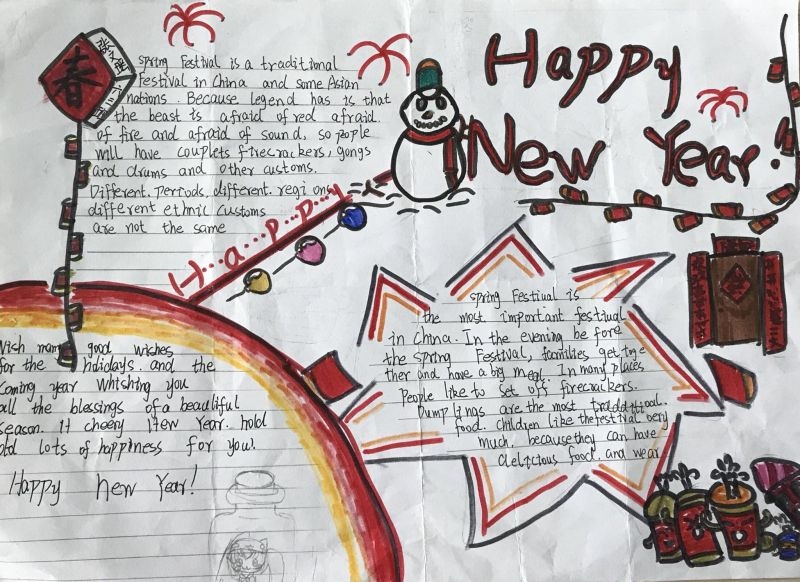 Happy
New Year!
春
Spring Festival is a traditional
Festival in China and some Asian
nations. Because legend has is that
the beast is afraid of red afraid.
of fire and afraid of sound, so people
will have couplets firecrackers, gongs
and drums and other customs.
Different. Periods. different. regions
different ethnic customs
are not the same
H...a...p...p...y
Wish many good wishes
for the hilidays. and the
Coming year Whishing you
all the blessings of a beautiful
season. it cheery new Year. hold
lots of happiness for you!.
Happy new Year!
Spring Festival is
the most important festival
in China. In the evening be fore
the Spring Festival, families get toge
ther and have a big meal. In many places
People like to set off firecrackers.
Dumplings are the most tradditional.
food. Children like the festival very
much. because they can have
delicious food. and wear